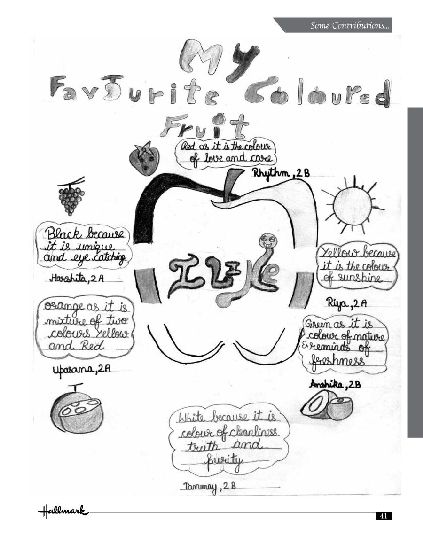 Some Contributions...
My
Favourite Coloured
Fruit
Red as it is the colour
of love and care
Rhythm, 2B
Black because
it is unique
and eye catching
Harshita, 2A
Yellow because
it is the colour
of sunshine
Riya, 2A
I like
orange as it is
mixture of two
colours Yellow
and Red
Upasana, 2A
Green as it is
colour of nature
& reminds of
freshness
Anahika, 2B
White because it is
colour of cleanliness
truth and
purity
Tanmay, 2B
Hallmark
41